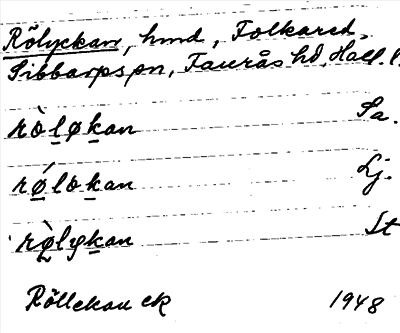 Rölyckan, hmd, Folkared,
Sibbarps sn, Faurås hd, Hall. l.
ròl̲øk̲an Sa.
rǿ̲lok̲an Lj.
rò̲lyk̲an St
Röllekan ek 1948